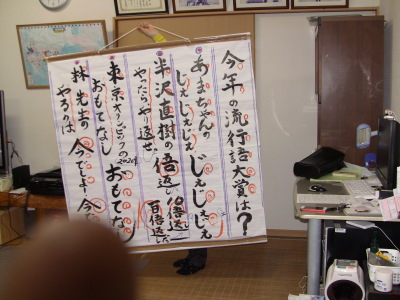 今年の流行語大賞は?
あまちゃんの
じぇじぇじぇ じぇじぇじぇ
半沢直樹の倍返し
やったらやり返せ、倍返し
百倍返し
東京オリンピックの2020年
おもてなし おもてなし
林先生の
やるのは 今でしょ 今で